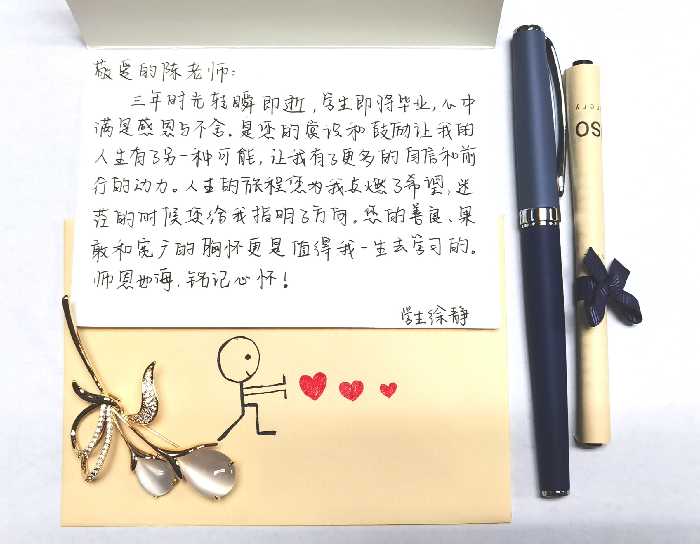 敬爱的陈老师:
三年时光转瞬即逝,学生即将毕业,心中
满是感恩与不舍。是您的赏识和鼓励让我的
人生有了另一种可能,让我有了更多的自信和前
行的动力。人生的旅程您为我点燃了希望,迷
茫的时候您给我指明了方向。您的善良、果
敢和宽广的胸怀更是值得我一生去学习的。
师恩如海,铭记心怀!
学生徐静
OSO